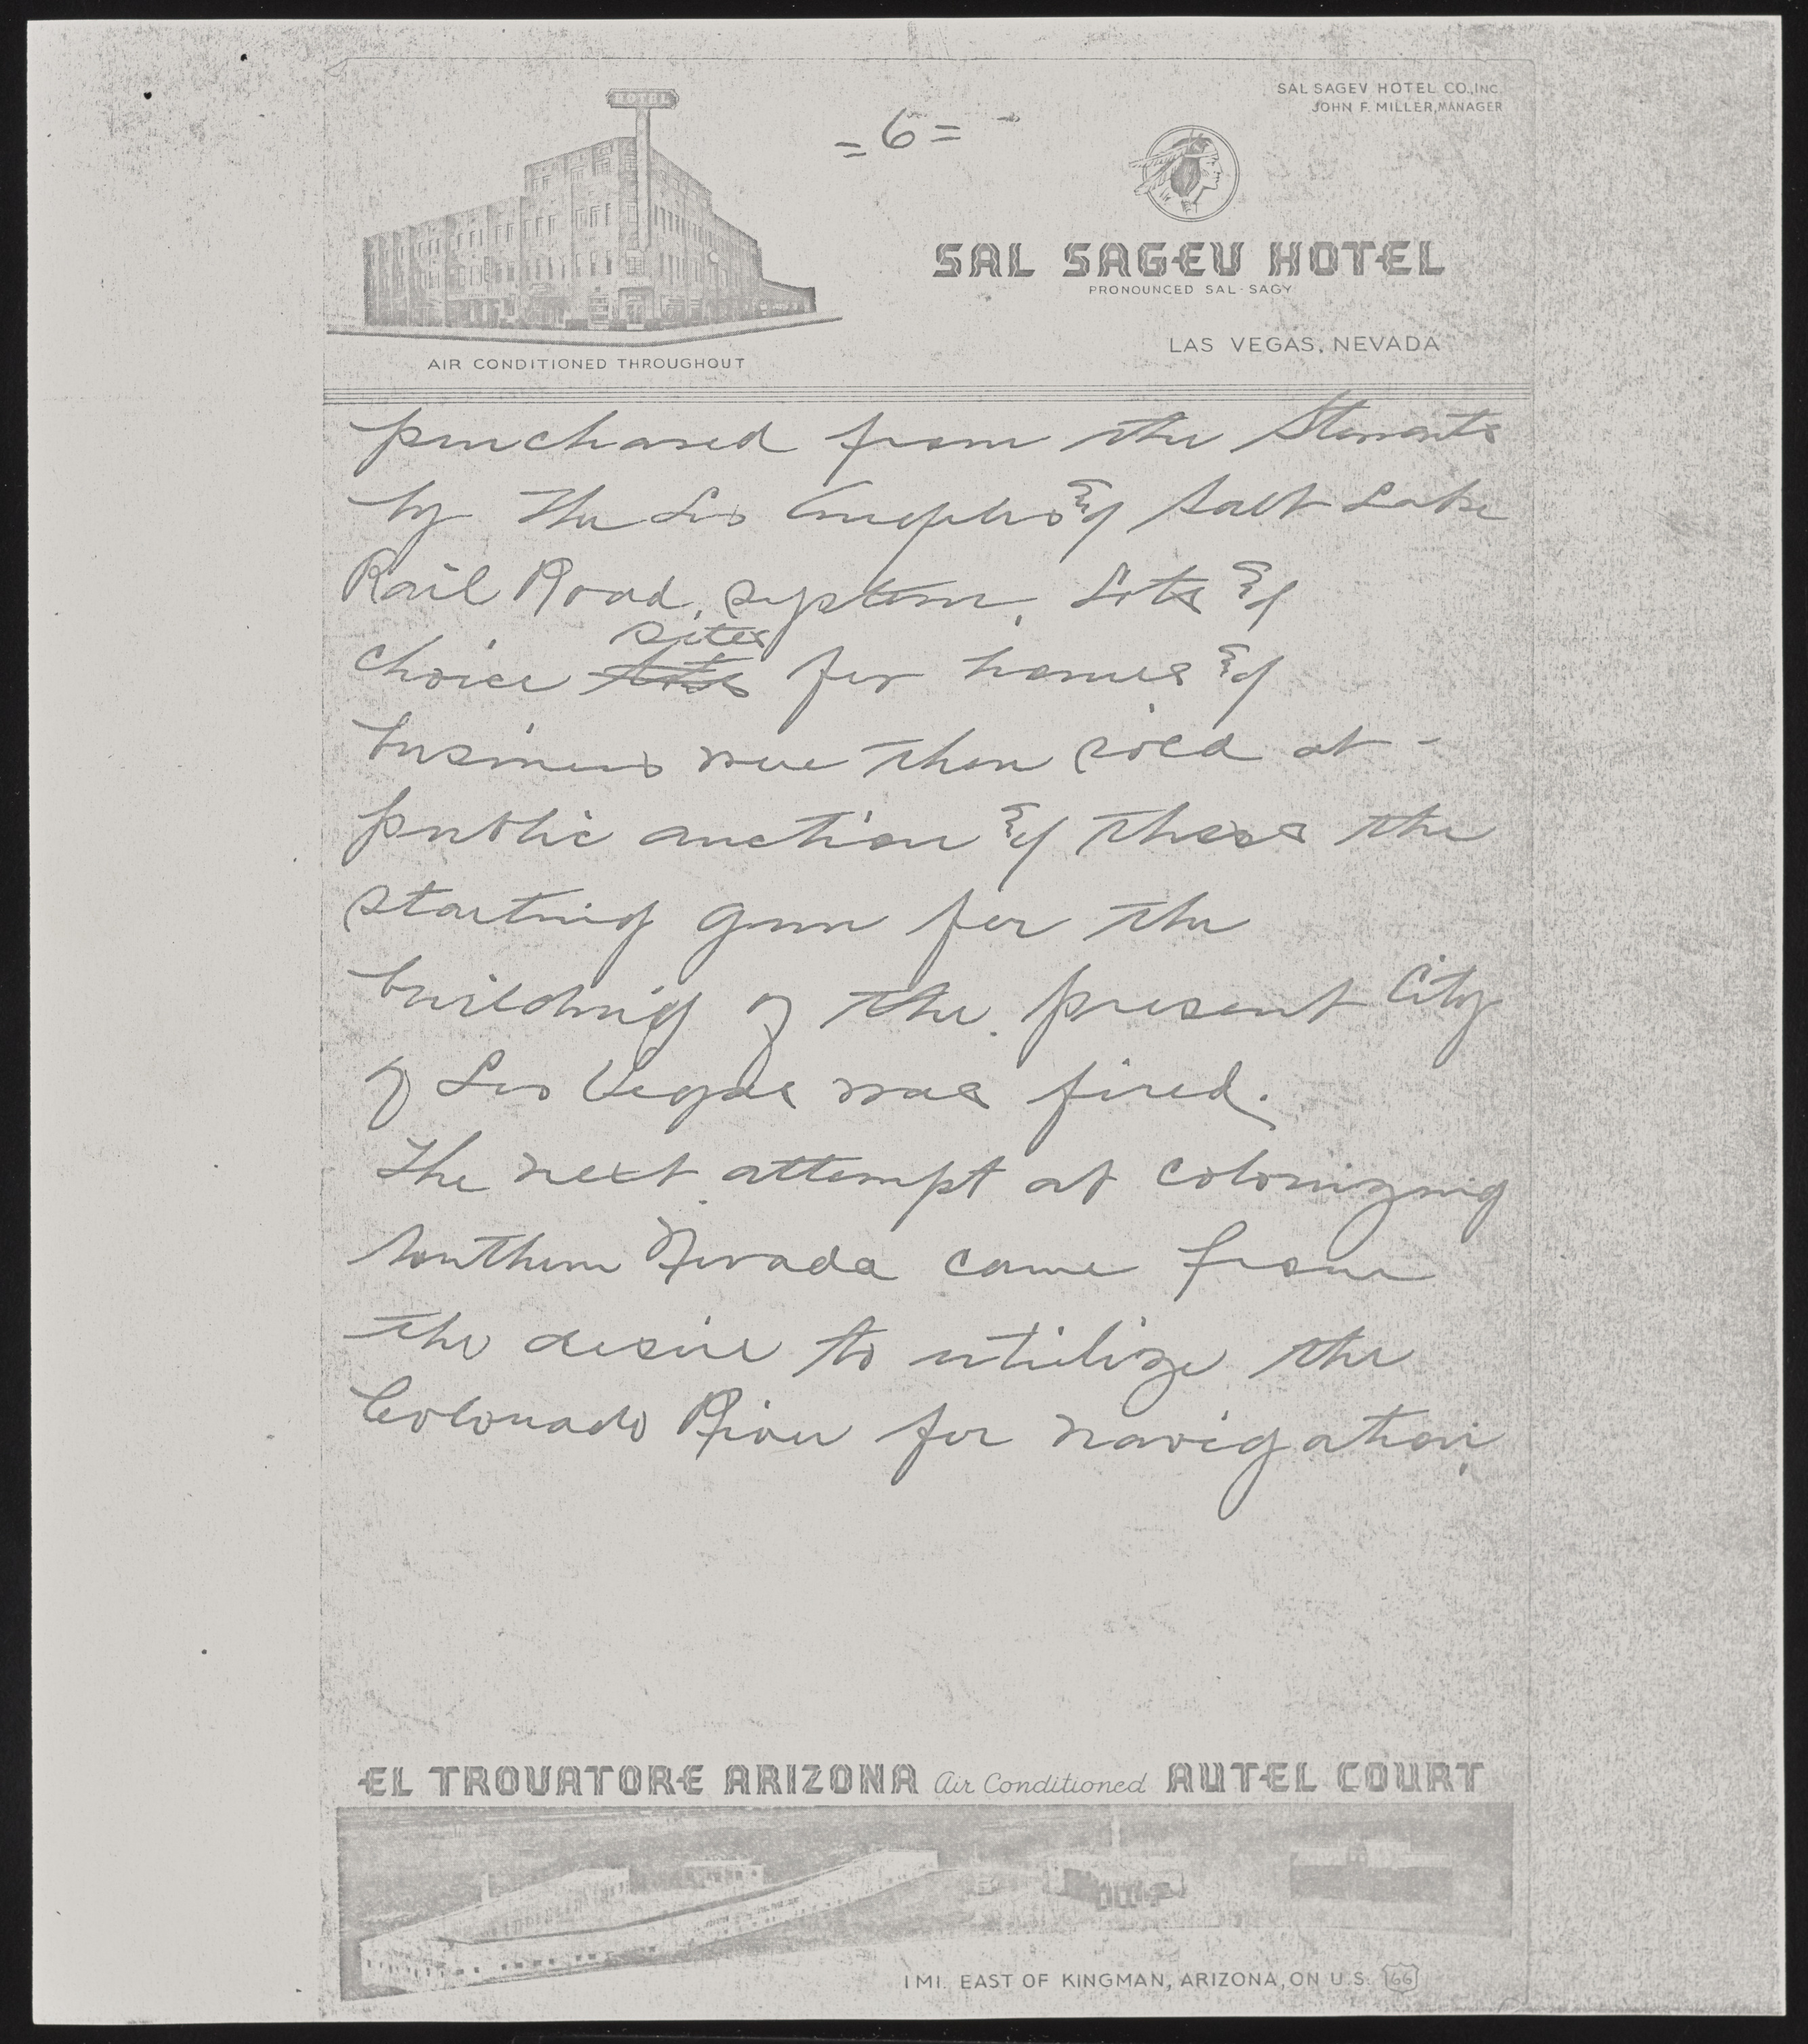 HOTEL
SAL SAGEV HOTEL CO., INC.
JOHN F. MILLER, MANAGER
=6=
SAL SAGEV HOTEL
PRONOUNCED SAL-SAGY
LAS VEGAS, NEVADA
AIR CONDITIONED THROUGHOUT
purchased from the Stewarts
by the Los Angeles & Salt Lake
Rail Road, system. Lots &
sites
choice for homes &
business were then sold at -
public auction & the
starting gun for the
building of the present City
of Las Vegas was fired.
The next attempt at colonizing
Southern Nevada came from
the desire to utilize the
Colorado River for navigation
EL TROVATORE ARIZONA Air Conditioned AUTEL COURT
1 MI. EAST OF KINGMAN, ARIZONA, ON U.S. 66